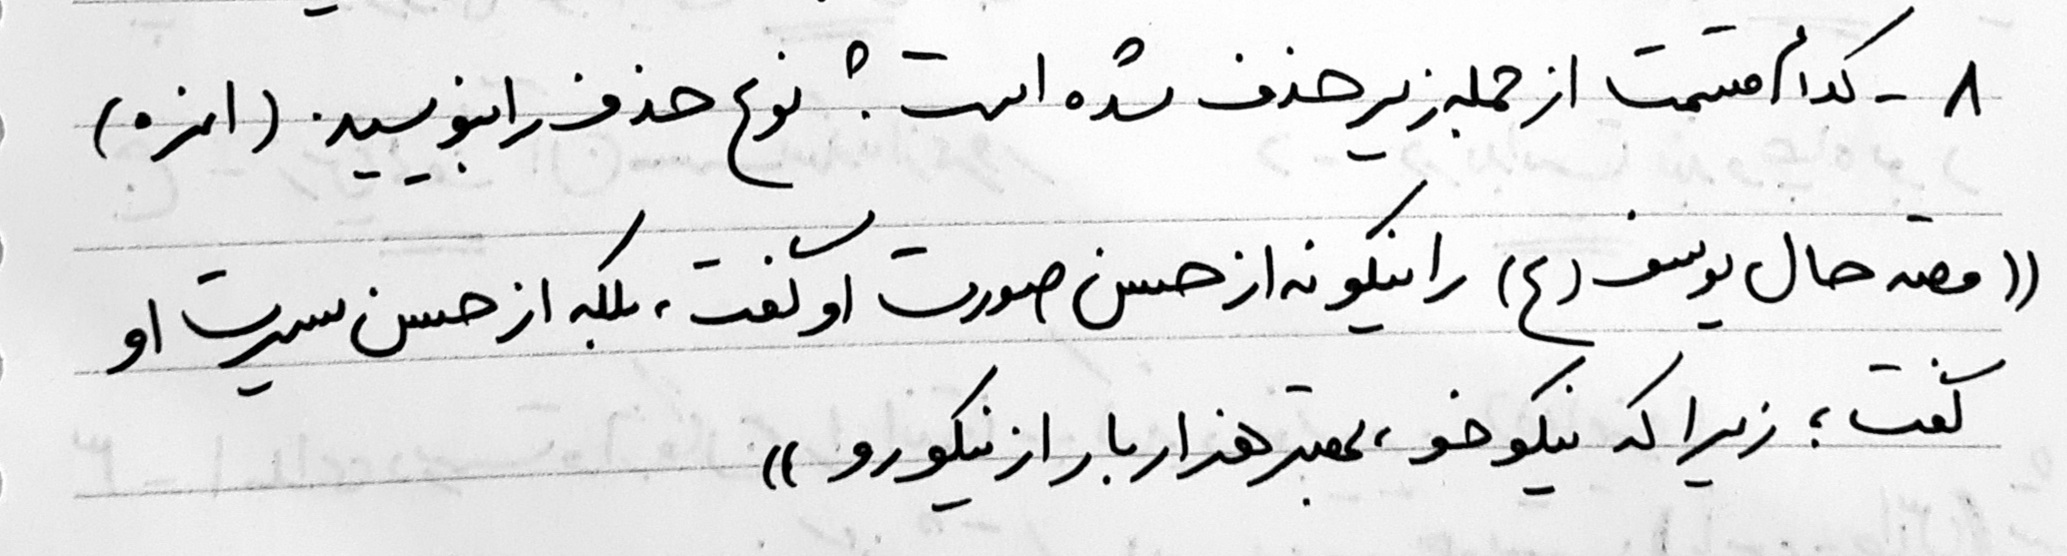 ۸ - کدام قسمت از جمله زیر حذف شده است؟ نوع حذف را بنویسید. (نمره)
((قصه حال یوسف (ع) را نیکو نه از حسن صورت او گفت، بلکه از حسن سیرت او
گفت؛ زیرا که نیکو خو، بهتر هزار بار از نیکو رو))